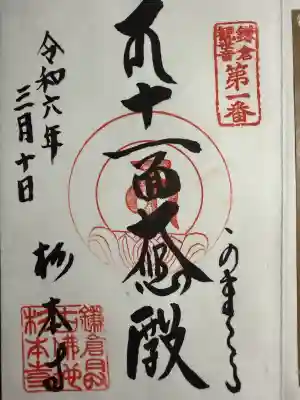 鎌倉
第一番
十一面大悲殿
令和六年
三月十日
杉本寺
鎌倉最
古佛地
杉本寺